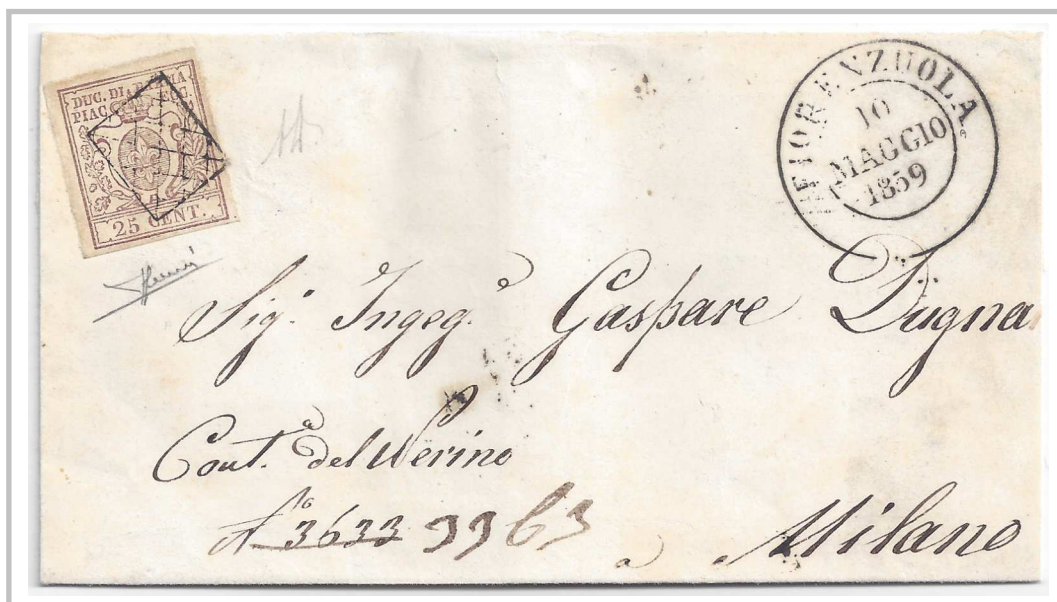 DUG. DI PIAC. ECC.
25 CENT.
FIORENZUOLA
10
MAGGIO
1859
Sig. Ingeg.e Gaspare Dugna
Cont.a del
No 3633 3963
a Milano